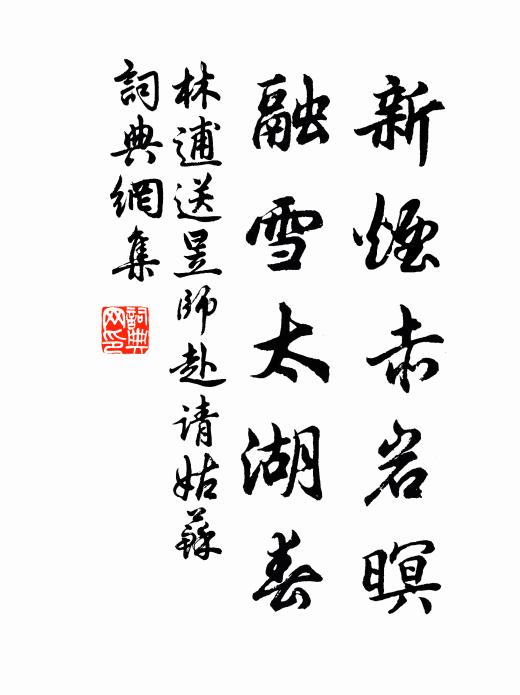 新煙赤岩暝
融雪太湖春
林逋送昱師赴请姑蘇
詞典網集
詞典网印